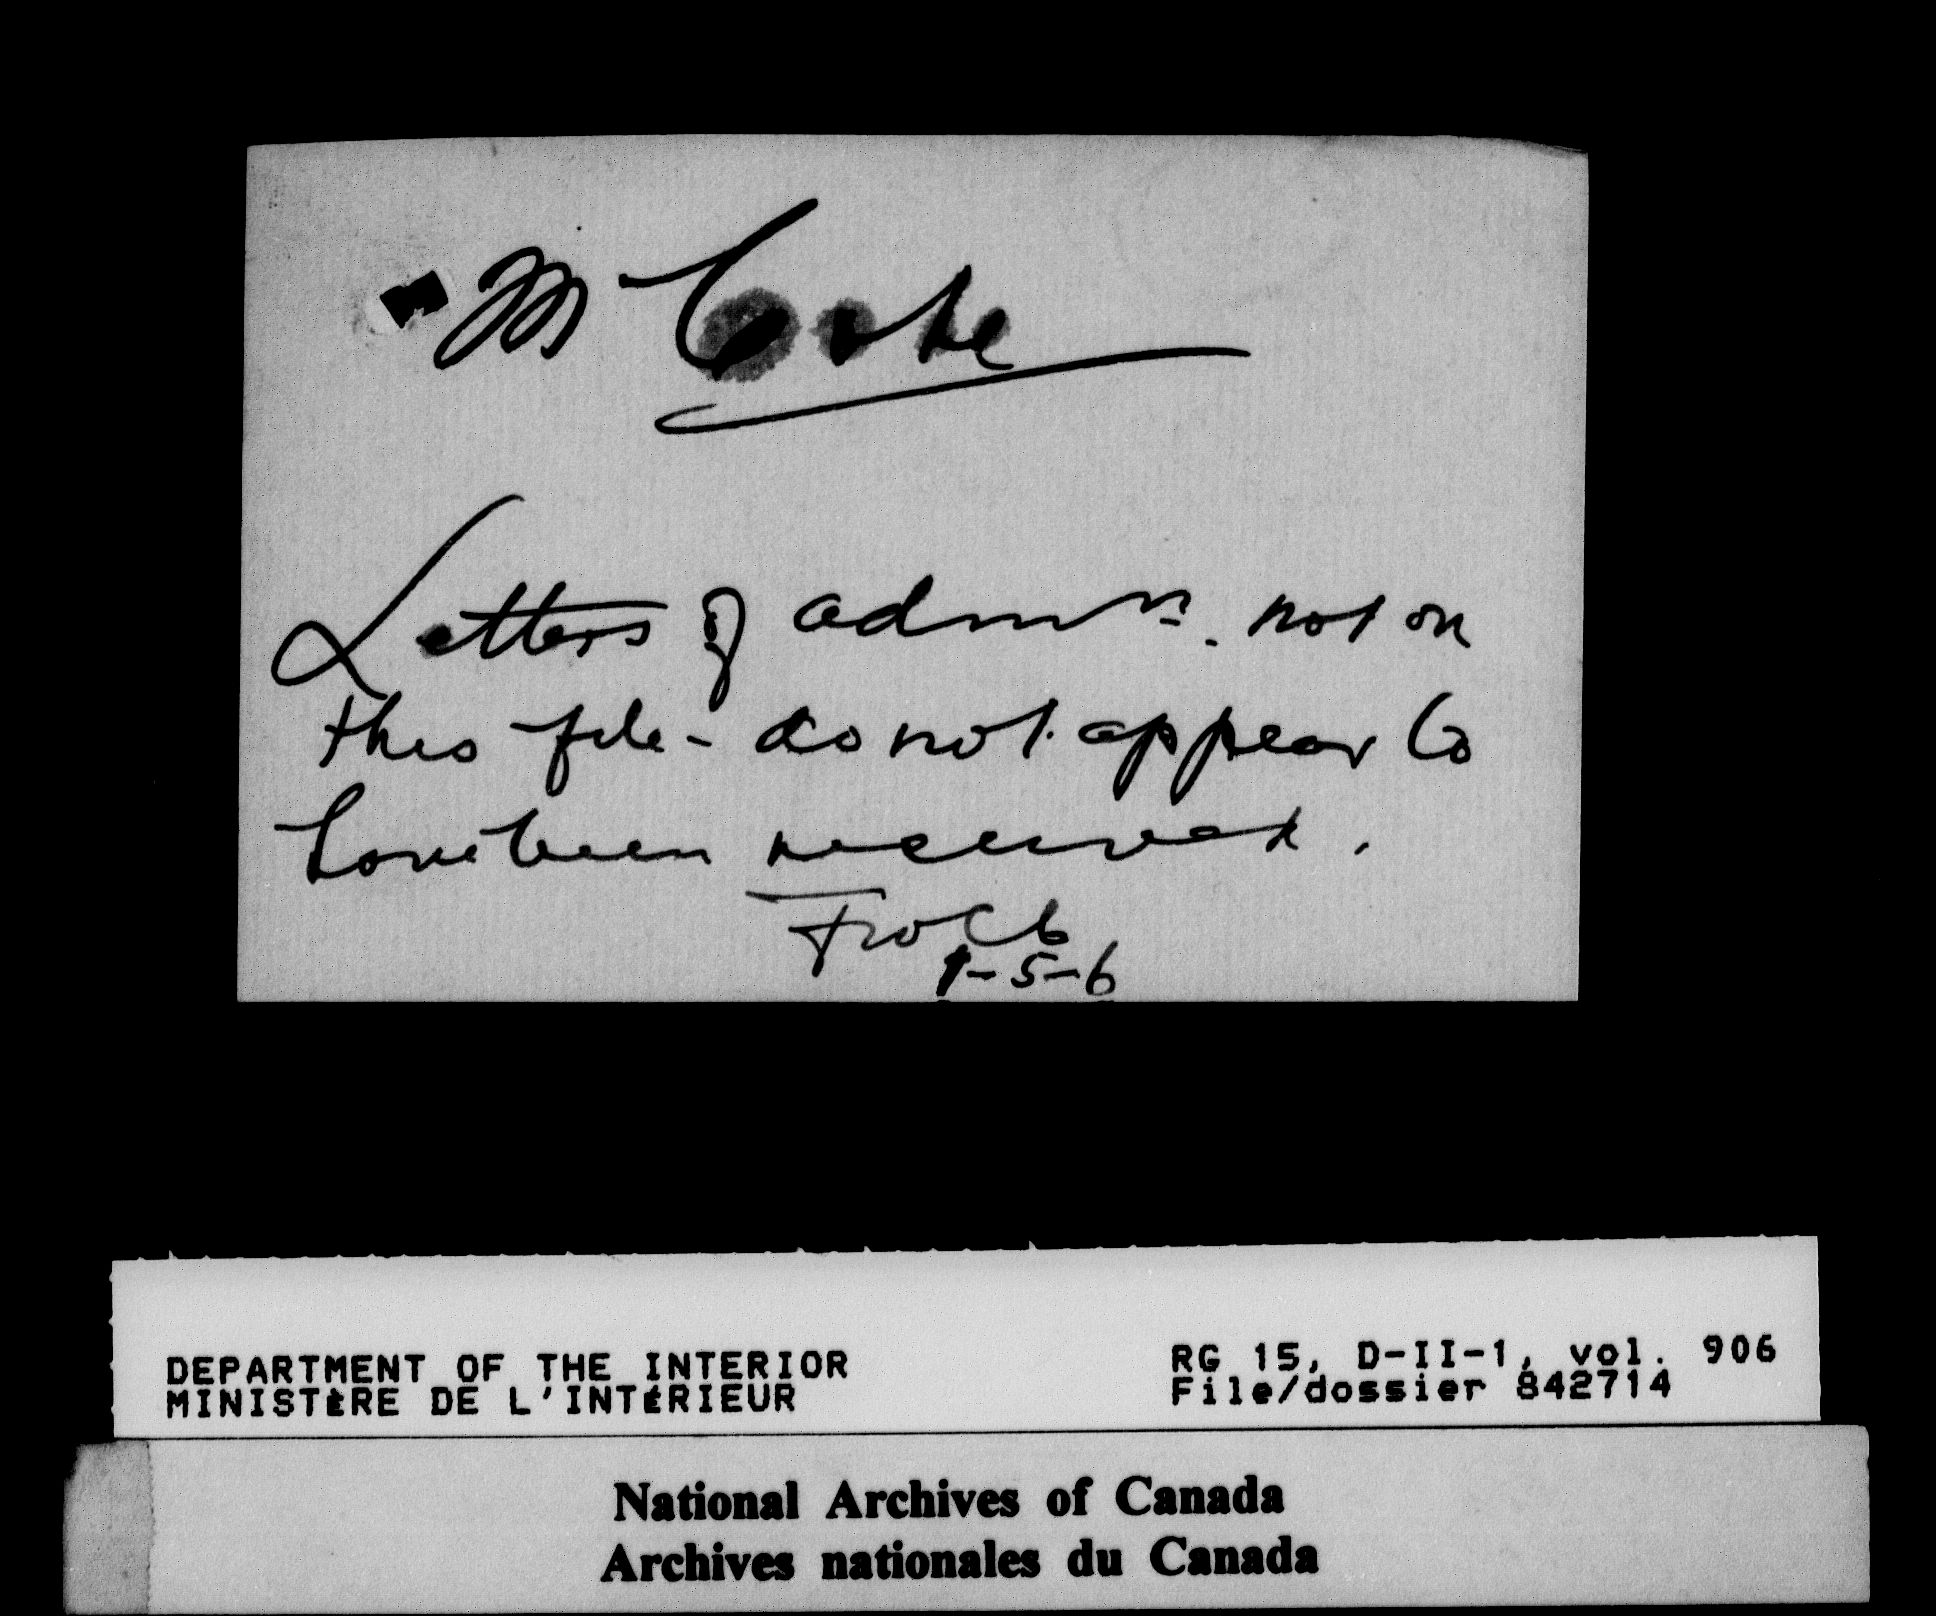 Mr Côté
Letters of admn. not on
this file - do not appear to
have been received.
1-5-6
DEPARTMENT OF THE INTERIOR
MINISTÈRE DE L'INTÉRIEUR
RG 15, D-II-1, vol. 906
File/dossier 842714
National Archives of Canada
Archives nationales du Canada